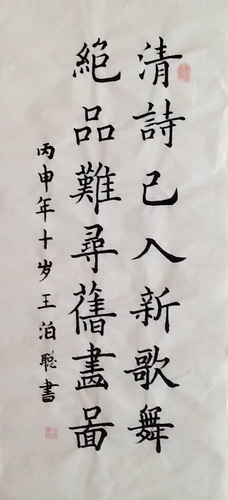 清詩已入新歌舞
絕品難尋舊畫圖
丙申年十岁王泊聪書